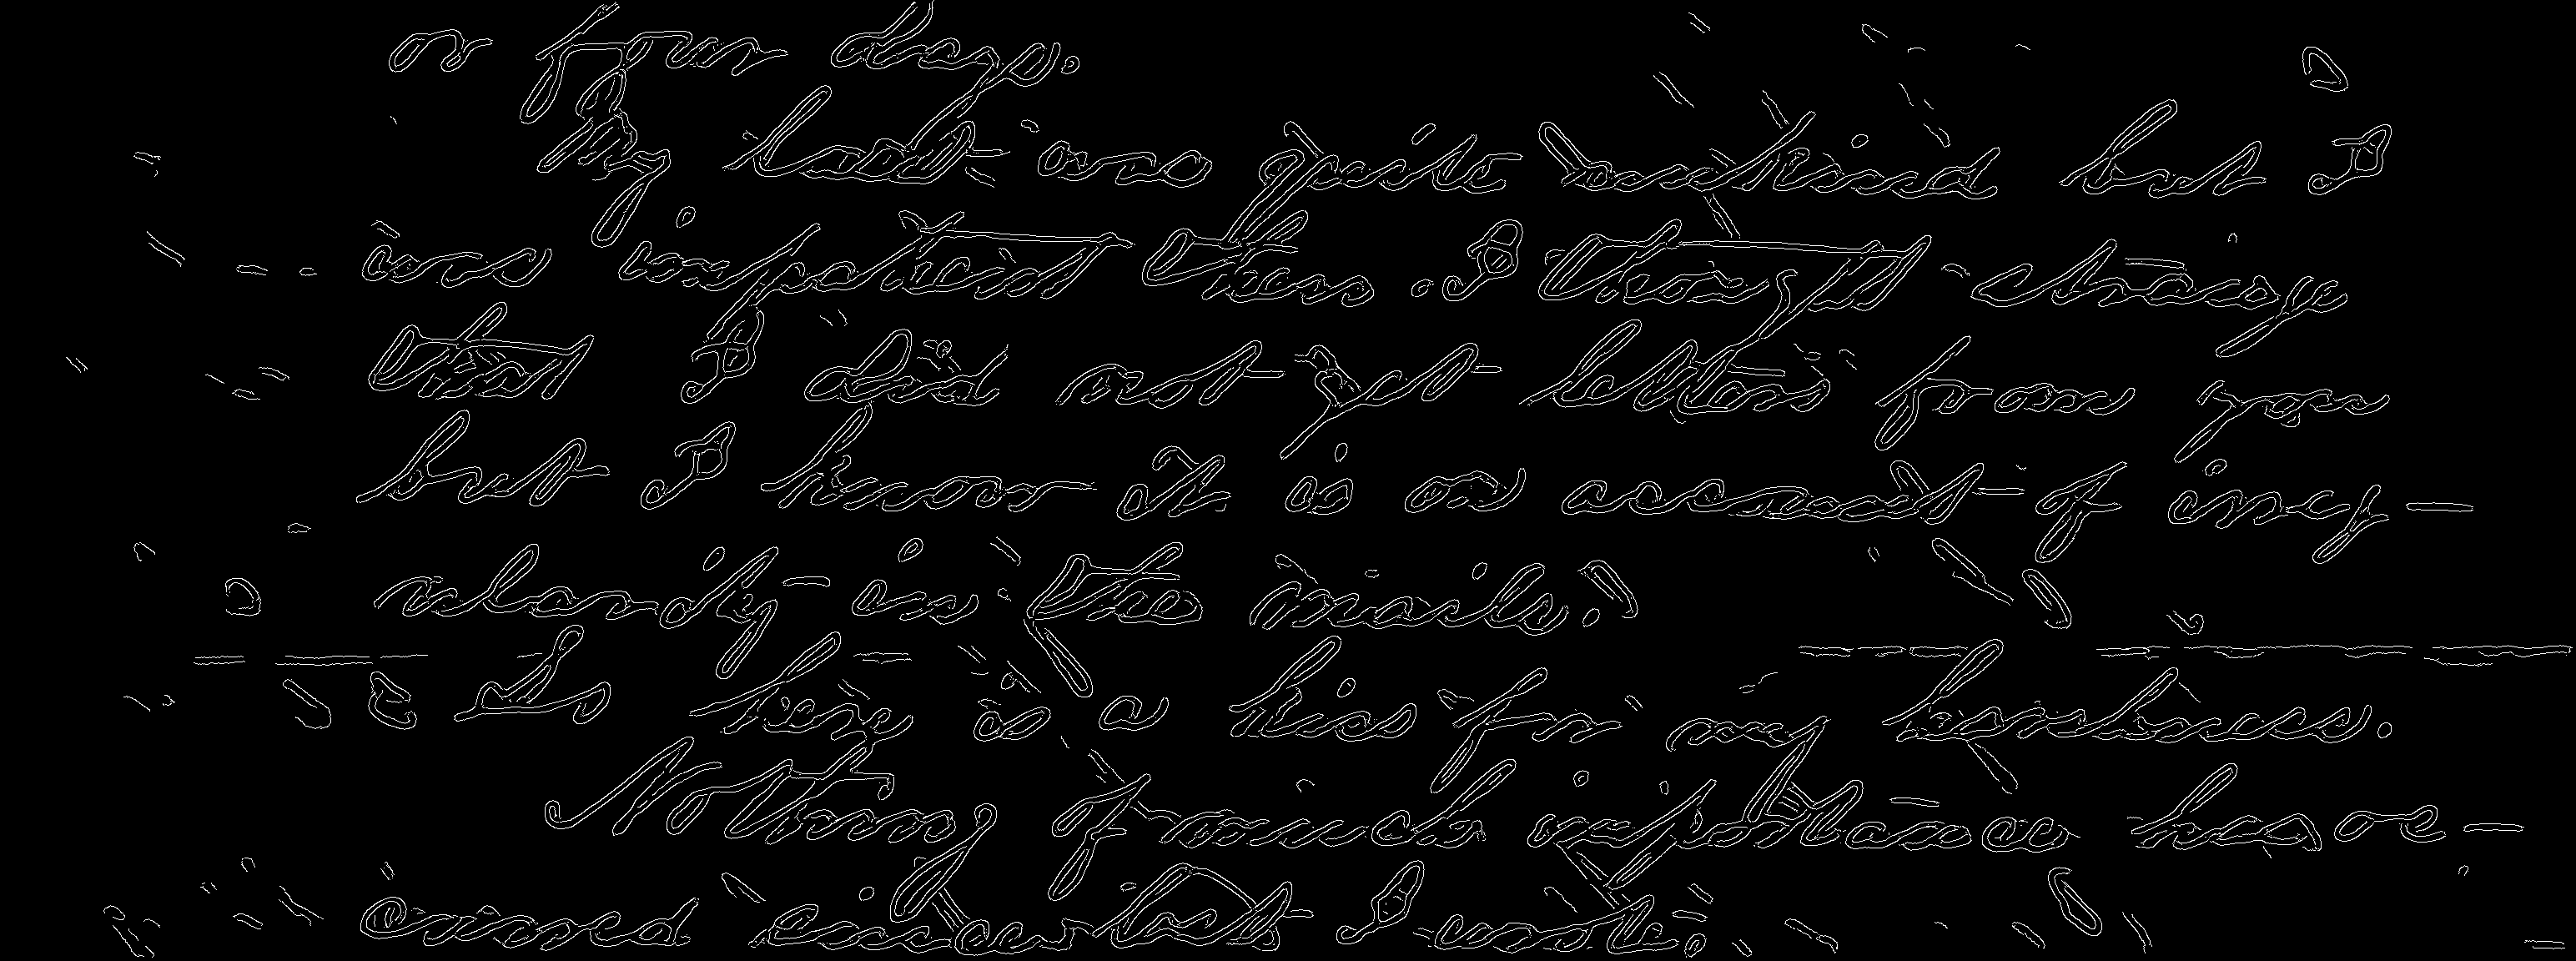 or four days.
My last was quite unkind but I
was impatient then. I thought strange
that I did not get letters from you
but I know it is on account of irreg-
ularity in the mails.
So here is a kiss for my
Nothing of much importance has oc-
curred since last I wrote.